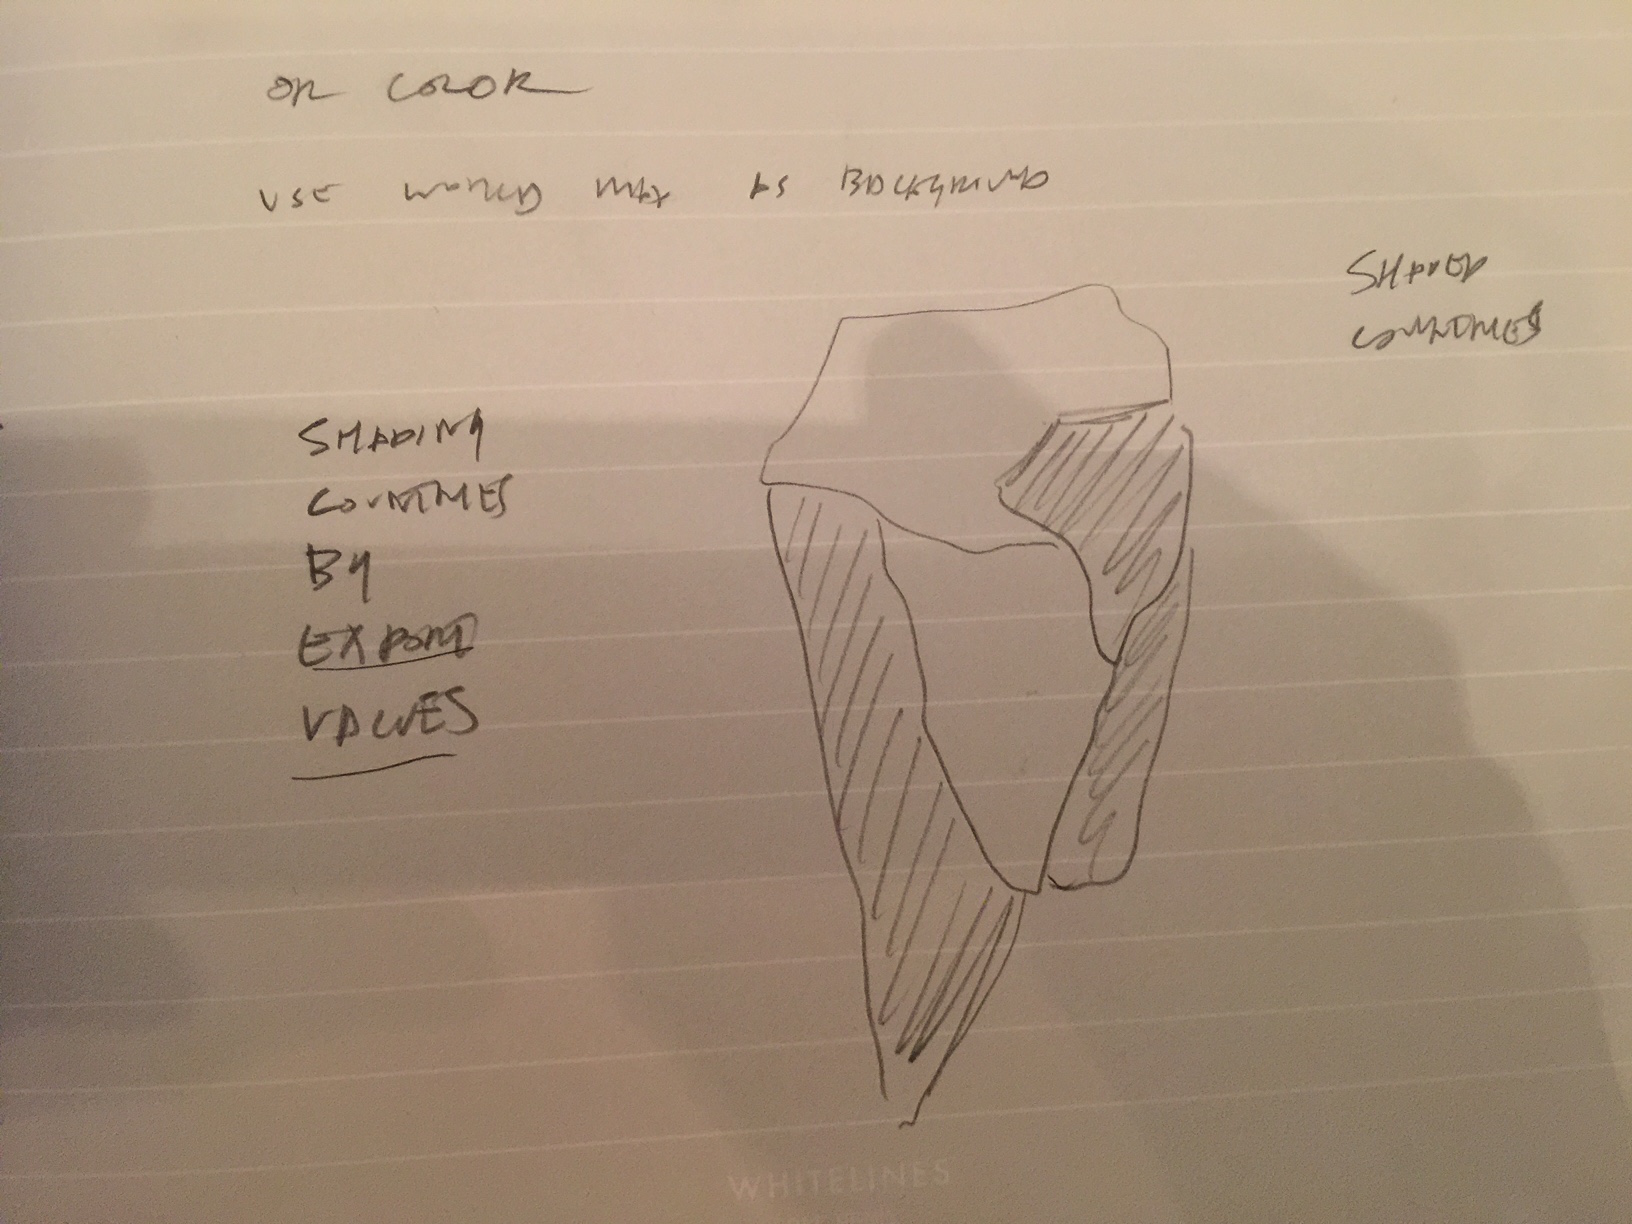 OR COLOR
USE WORLD MAP AS BACKGROUND
SHADED
COUNTRIES
SHADING
COUNTRIES
BY
EXPORT
VALUES
WHITELINES